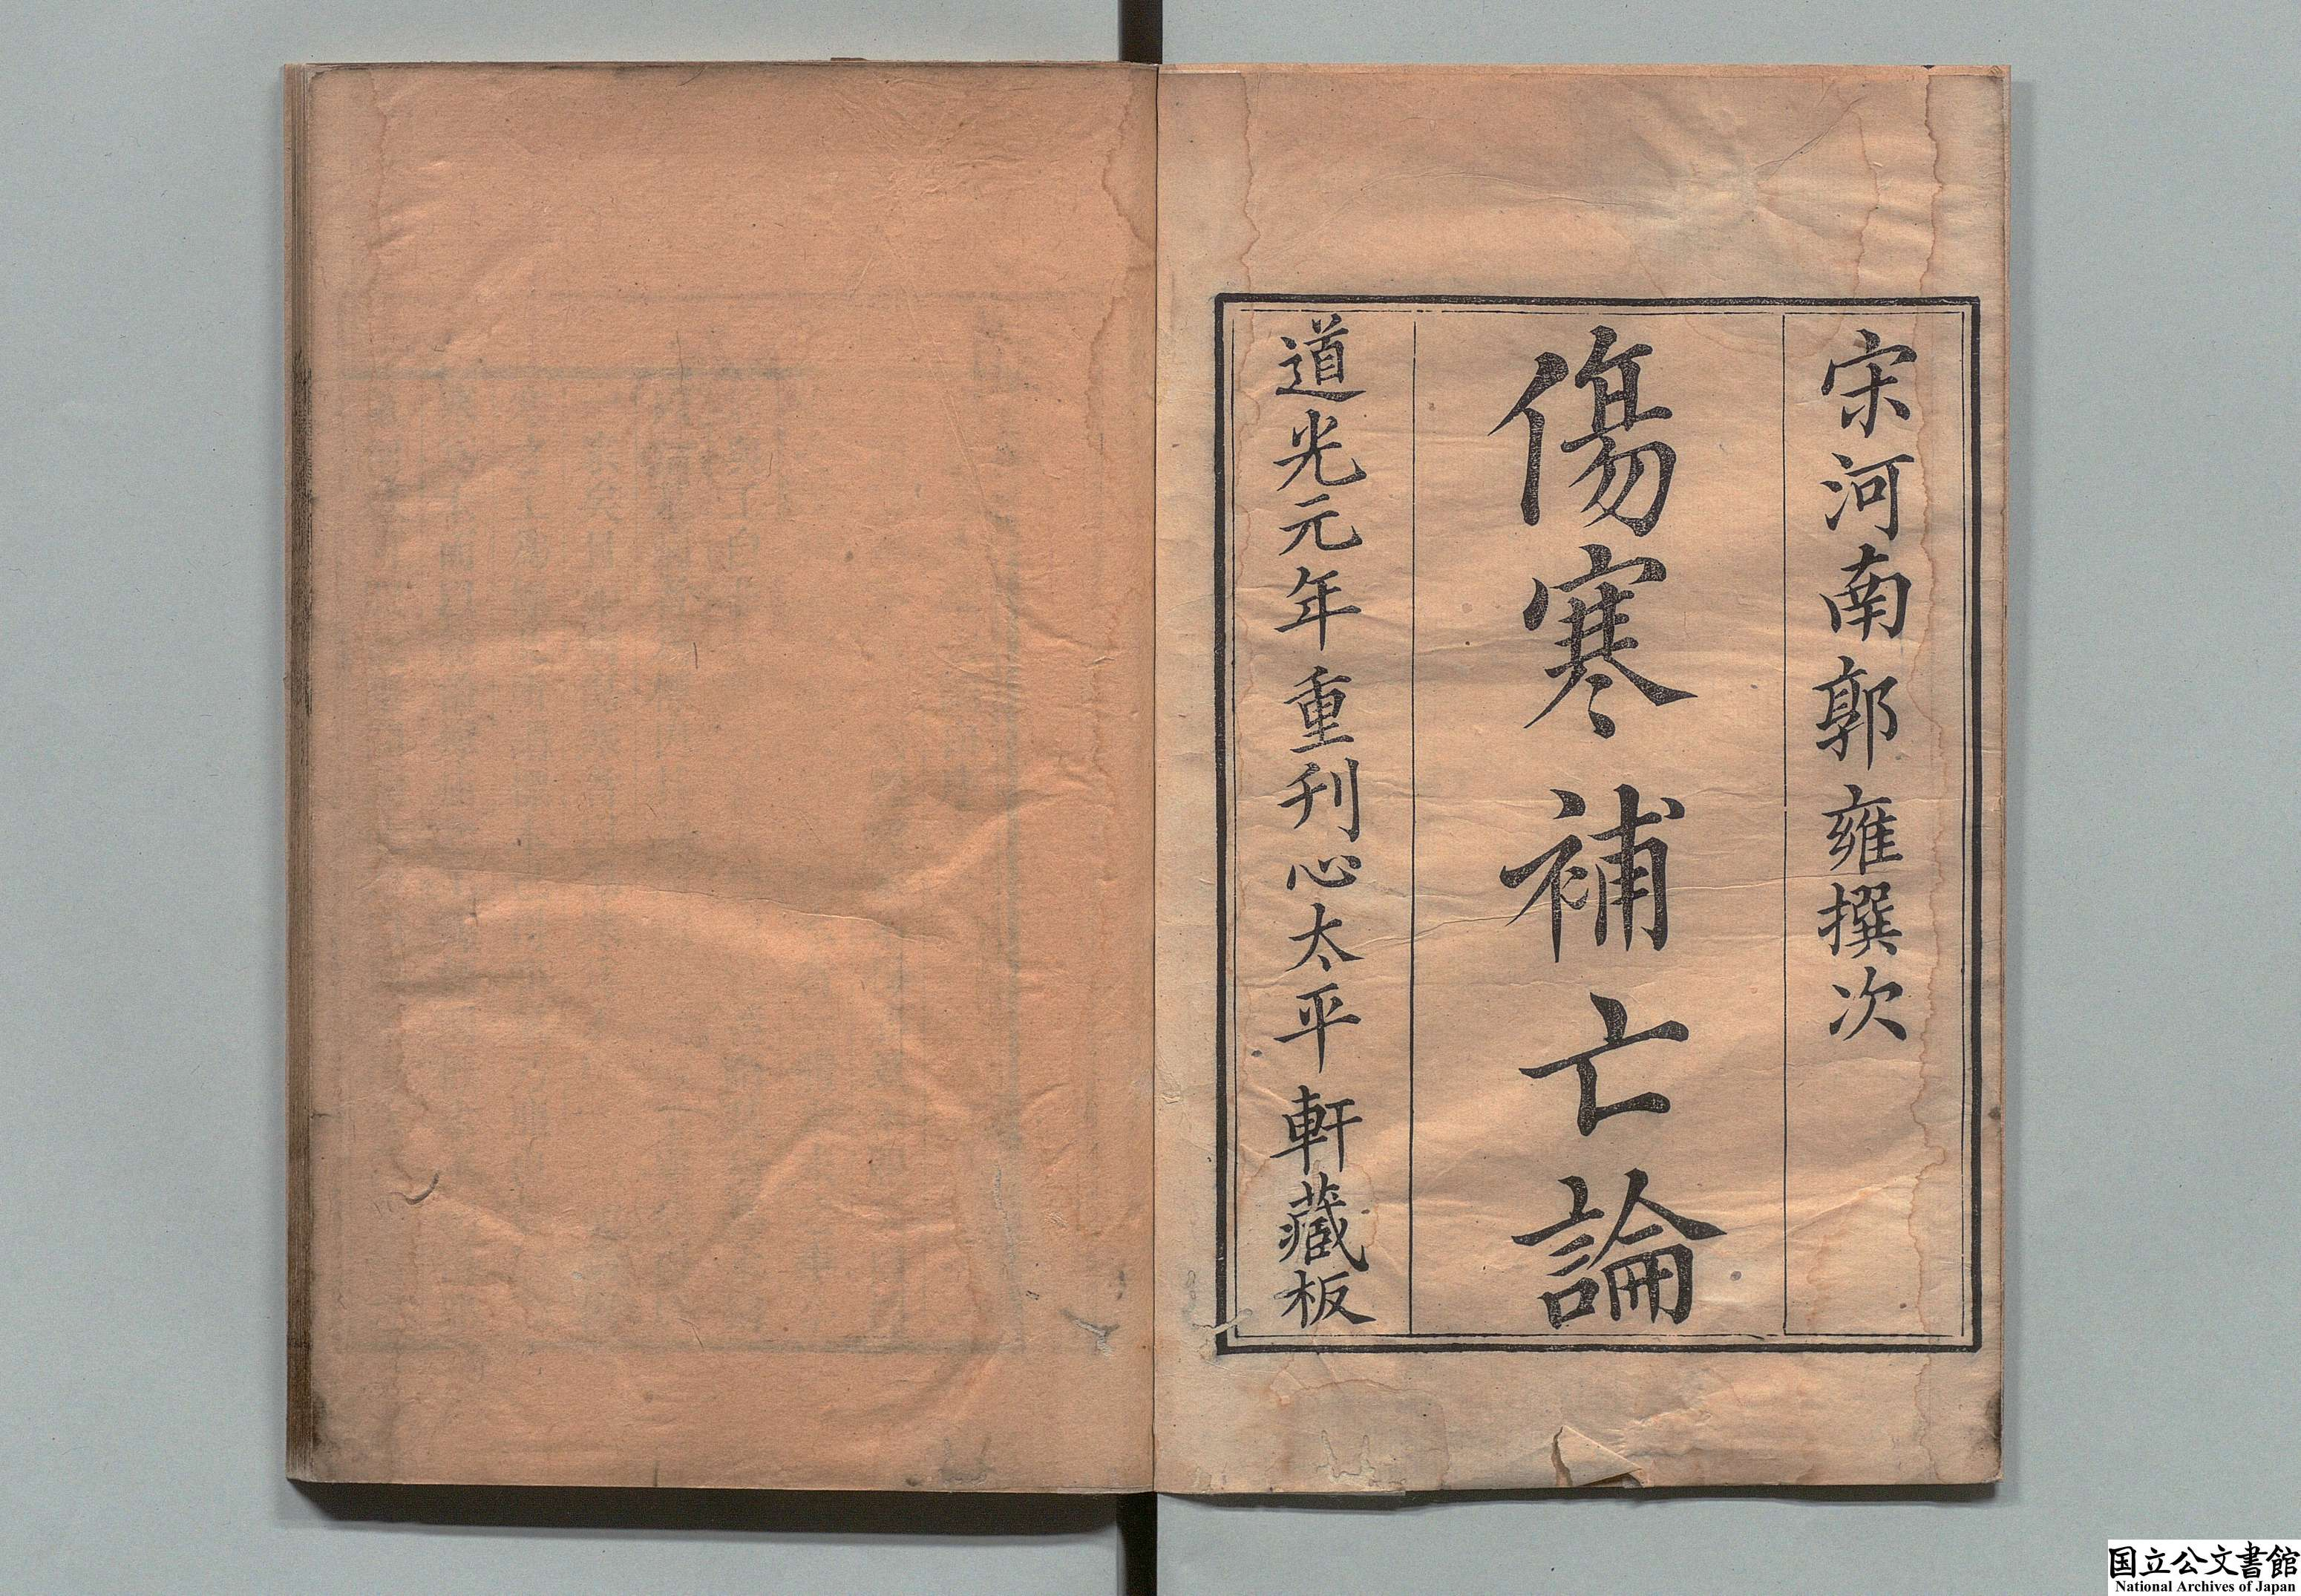 宋河南郭雍撰次
傷寒補亡論
道光元年重刊心太平軒藏板
国立公文書館
National Archives of Japan